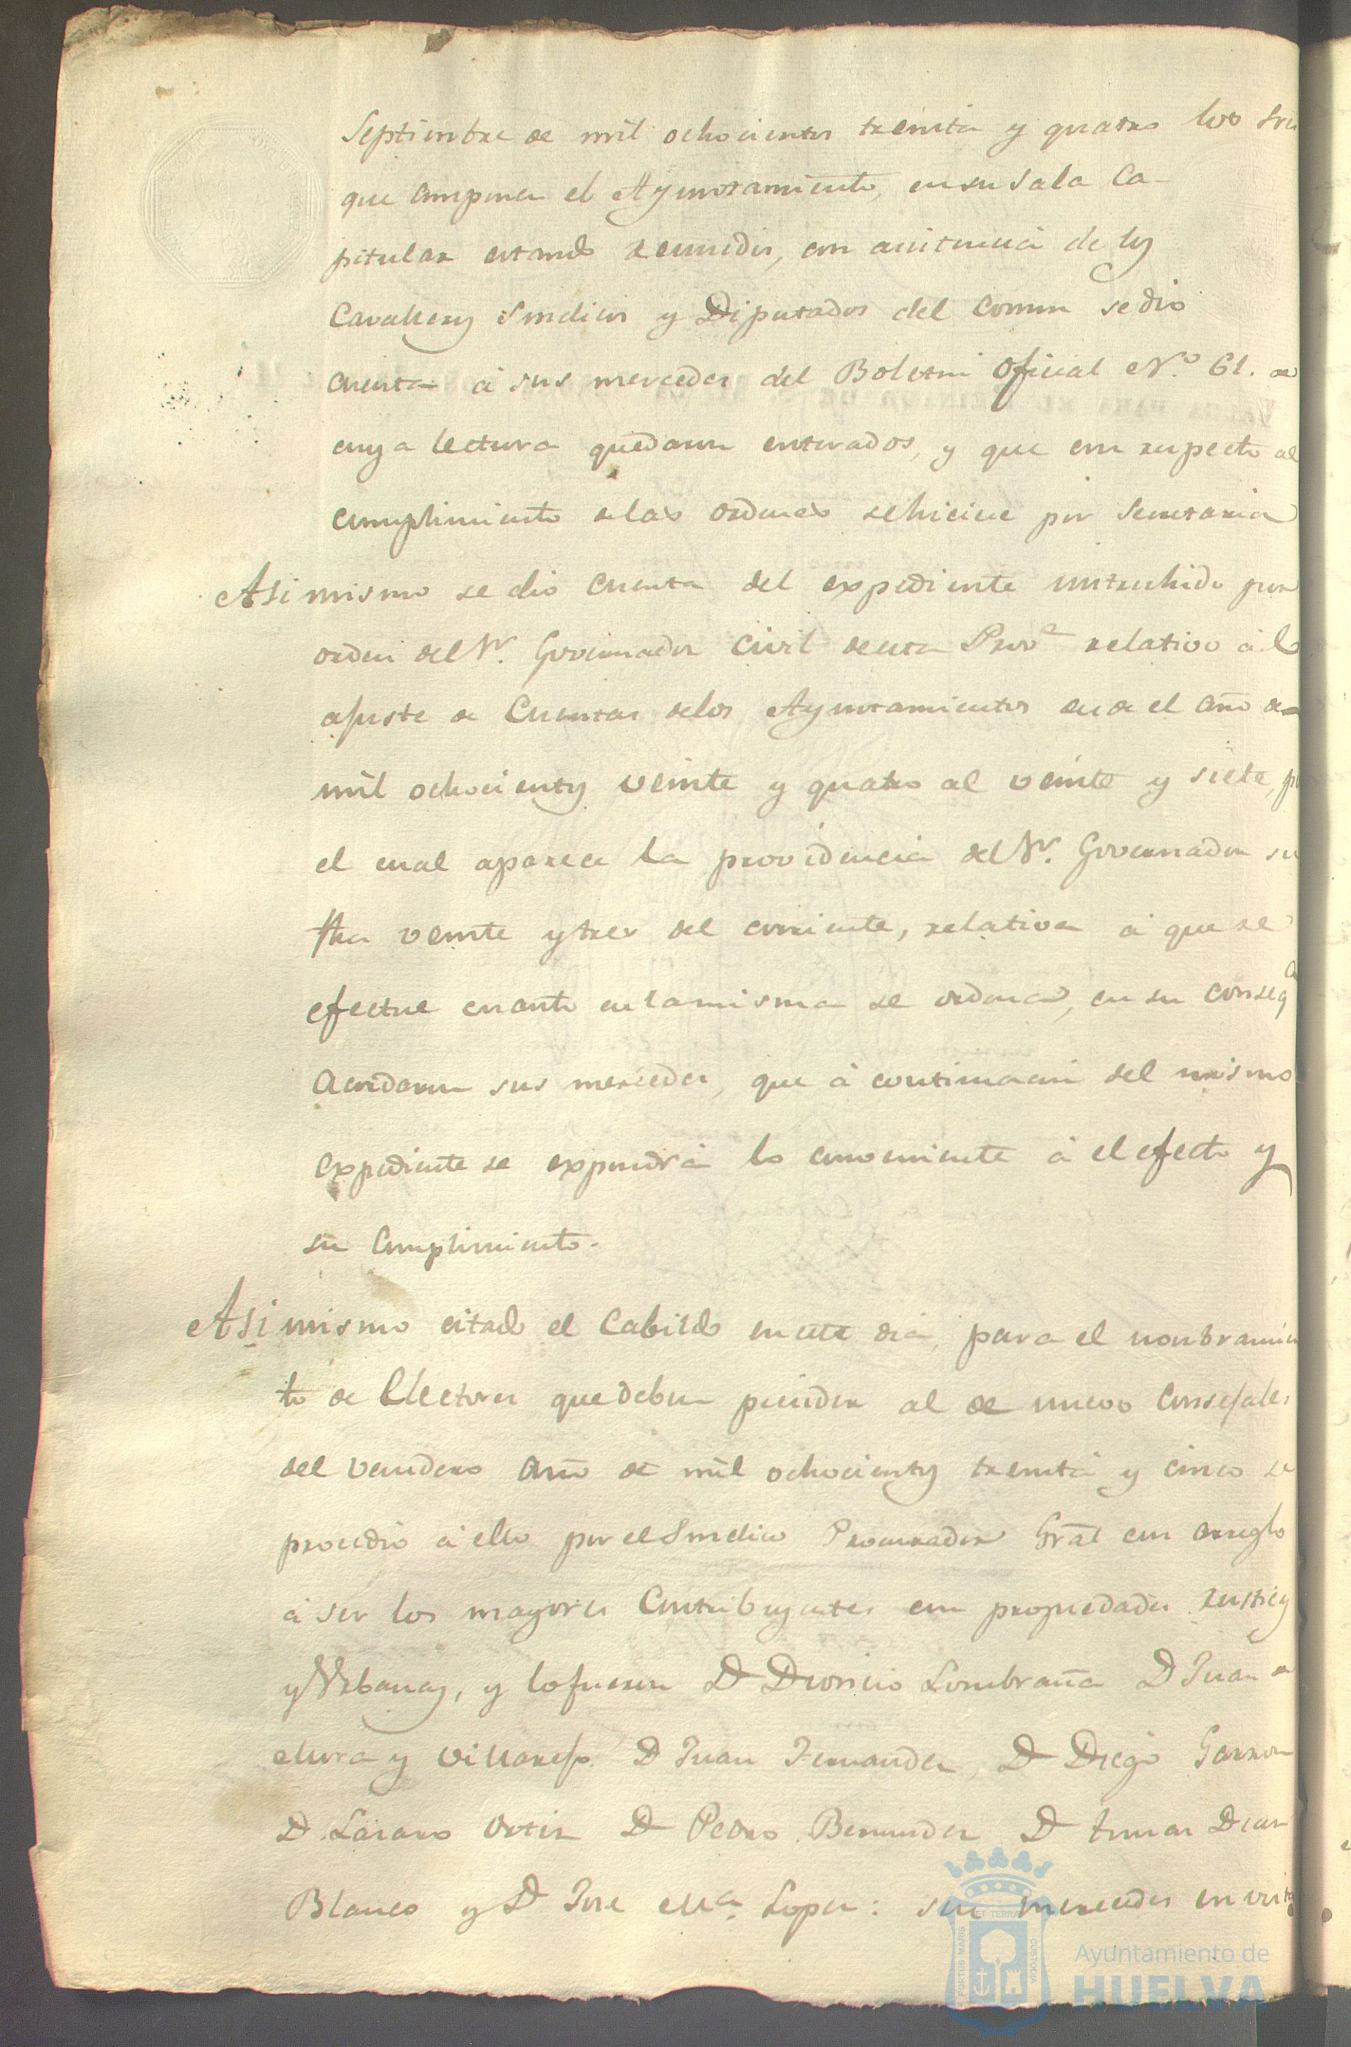 Septiembre de mil ochocientos treinta y quatro los Sres
que componen el Ayuntamiento, en su Sala Ca-
pitular estando reunidos, con asistencia de los
Cavalleros Sindicos y Diputados del comun se dio
cuenta á sus mercedes del Boletin Oficial N.º 61. de
cuya lectura quedaron enterados, y que con respecto al
cumplimiento de las ordenes se hiciese por Secretaria
Asi mismo se dio cuenta del expediente instruhido por
orden del Sr. Governador Civil de esta Prova relativo á el
ajuste de Cuentas de los Ayuntamientos desde el año de
mil ochocientos veinte y quatro al veinte y siete, pr
el cual aparece la providencia del Sr. Governador su
fha veinte y tres del corriente, relativa á que se
efectue cuanto en la misma se ordena, en su conseqa
Acordaron sus mercedes, que á continuacion del mismo
expediente se expondrá lo conveniente á el efecto y
su cumplimiento.
Asi mismo citado el Cabildo en este dia, para el nombramien
to de Electores que deben preceder al de nuevos Consejales
del venidero año de mil ochocientos treinta y cinco se
procedió á ello por el Sindico Procurador Gral con arreglo
á ser los mayores Contribuyentes con propiedades rusticas
y Urbanas, y lo fueron D Dionicio Lombraña D Juan de
Mora y Villarejo. D Juan Fernandez, D Diego Garzon
D. Lazaro Ortiz D Pedro Bermudez D Tomas Dias
Blanco y D Jose Ma. Lopez: sus mercedes en vista
PORTUS MARIS ET TERRAE CUSTODIA
Ayuntamiento de
HUELVA